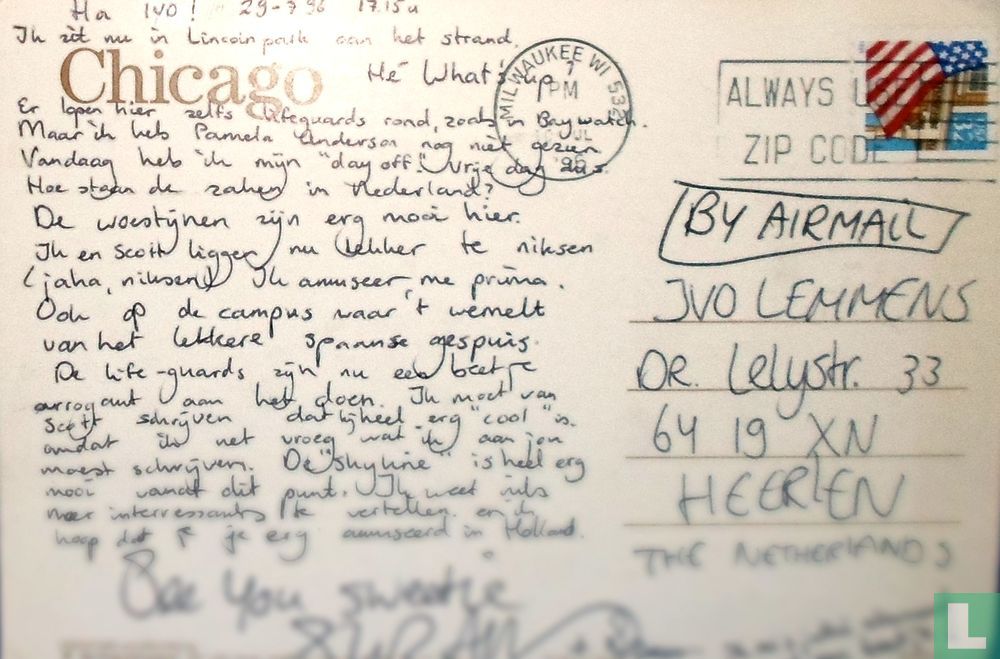 Ha Ivo! 29-7 96 17.15u
Ik zit nu in Lincoln park aan het strand.
Chicago
Hé What's up?
Er lopen hier zelfs lifeguards rond, zoals in Baywatch.
Maar ik heb Pamela Anderson nog niet gezien
Vandaag heb ik mijn "day off". Vrije dag dus.
Hoe staan de zaken in Nederland?
De woestijnen zijn erg mooi hier.
Ik en Scott liggen nu lekker te niksen
(jaha, niksen!) Ik amuseer me prima.
Ook op de campus waar 't wemelt
van het lekkere spaanse gespuis.
De life-guards zijn nu een beetje
arrogant aan het doen. Ik moet van
Scott schrijven dat hij heel erg "cool" is.
omdat ik net vroeg wat ik aan jou
moest schrijven. De "skyline" is heel erg
mooi vanaf dit punt. Ik weet niks
meer interressants te vertellen en ik
hoop dat je je erg amuseerd in Holland.
See you sweetie
MILWAUKEE WI 532
PM
ALWAYS U
ZIP CODE
BY AIRMAIL
IVO LEMMENS
DR. Lelystr. 33
64 19 XN
HEERLEN
THE NETHERLANDS
L